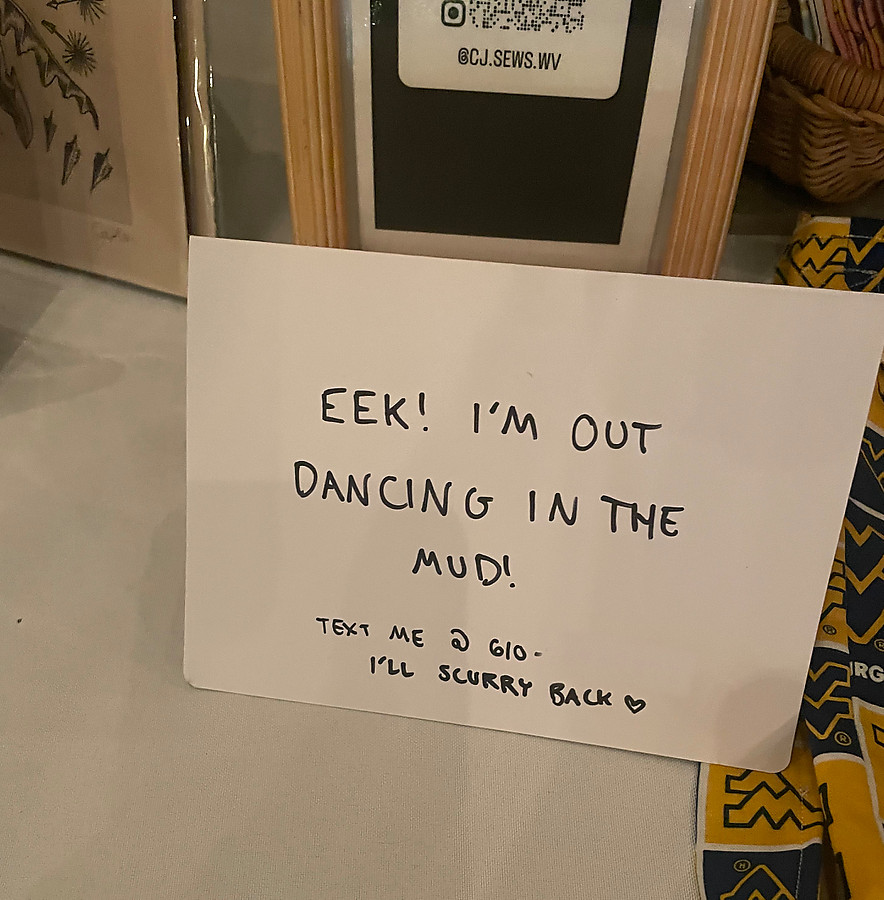 @CJ.SEWS.WV
EEK! I'M OUT
DANCING IN THE
MUD!
TEXT ME @ 610-
I'LL SCURRY BACK ♡
RG